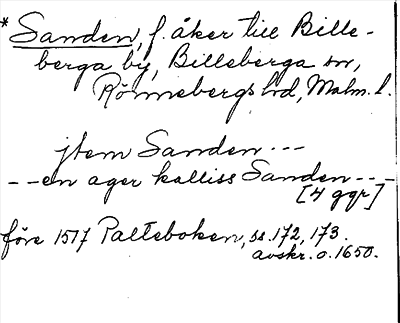 *Sanden, f. åker till Bille-
berga by, Billeberga sn,
Rönnebergs hd, Malm. l.
jtem Sanden ---
--en ager kalliss Sanden ---
[4 ggr]
före 1517 Palteboken, ss. 172, 173.
avskr. o. 1650.